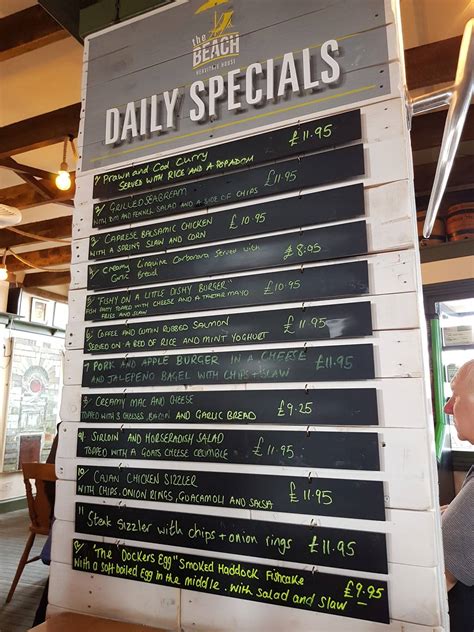 the
BEACH
HERITAGE HOUSE
DAILY SPECIALS
1/ Prawn and Cod Curry £11.95
SERVED WITH RICE AND A POPADOM
2/ GRILLED SEABREAM £11.95
WITH TOM AND FENNEL SALAD AND A SIDE OF CHIPS
3/ CAPRESE BALSAMIC CHICKEN £10.95
WITH A SPRING SLAW AND CORN
4/ Creamy Linguine Carbonara Served with £8.95
Garlic Bread
5/ "FISHY ON A LITTLE DISHY BURGER" £10.95
FISH PATTY TOPPED WITH CHEESE AND A TARTAR MAYO
FRIES AND SLAW
6/ COFFEE AND CUMIN RUBBED SALMON £11.95
SERVED ON A BED OF RICE AND MINT YOGHURT
7 PORK AND APPLE BURGER IN A CHEESE £11.95
AND JALEPENO BAGEL WITH CHIPS + SLAW
8/ CREAMY MAC AND CHEESE £9.25
TOPPED WITH 3 CHEESES, BACON AND GARLIC BREAD
9/ SIRLOIN AND HORSERADISH SALAD £11.95
TOPPED WITH A GOATS CHEESE CRUMBLE
10/ CAJAN CHICKEN SIZZLER £11.95
WITH CHIPS, ONION RINGS, GUACAMOLI AND SALSA
11 Steak Sizzler with chips + onion rings £11.95
12/ "The "Dockers Egg" Smoked Haddock Fishcake £9.95
With a soft boiled Egg in the middle. with salad and slaw